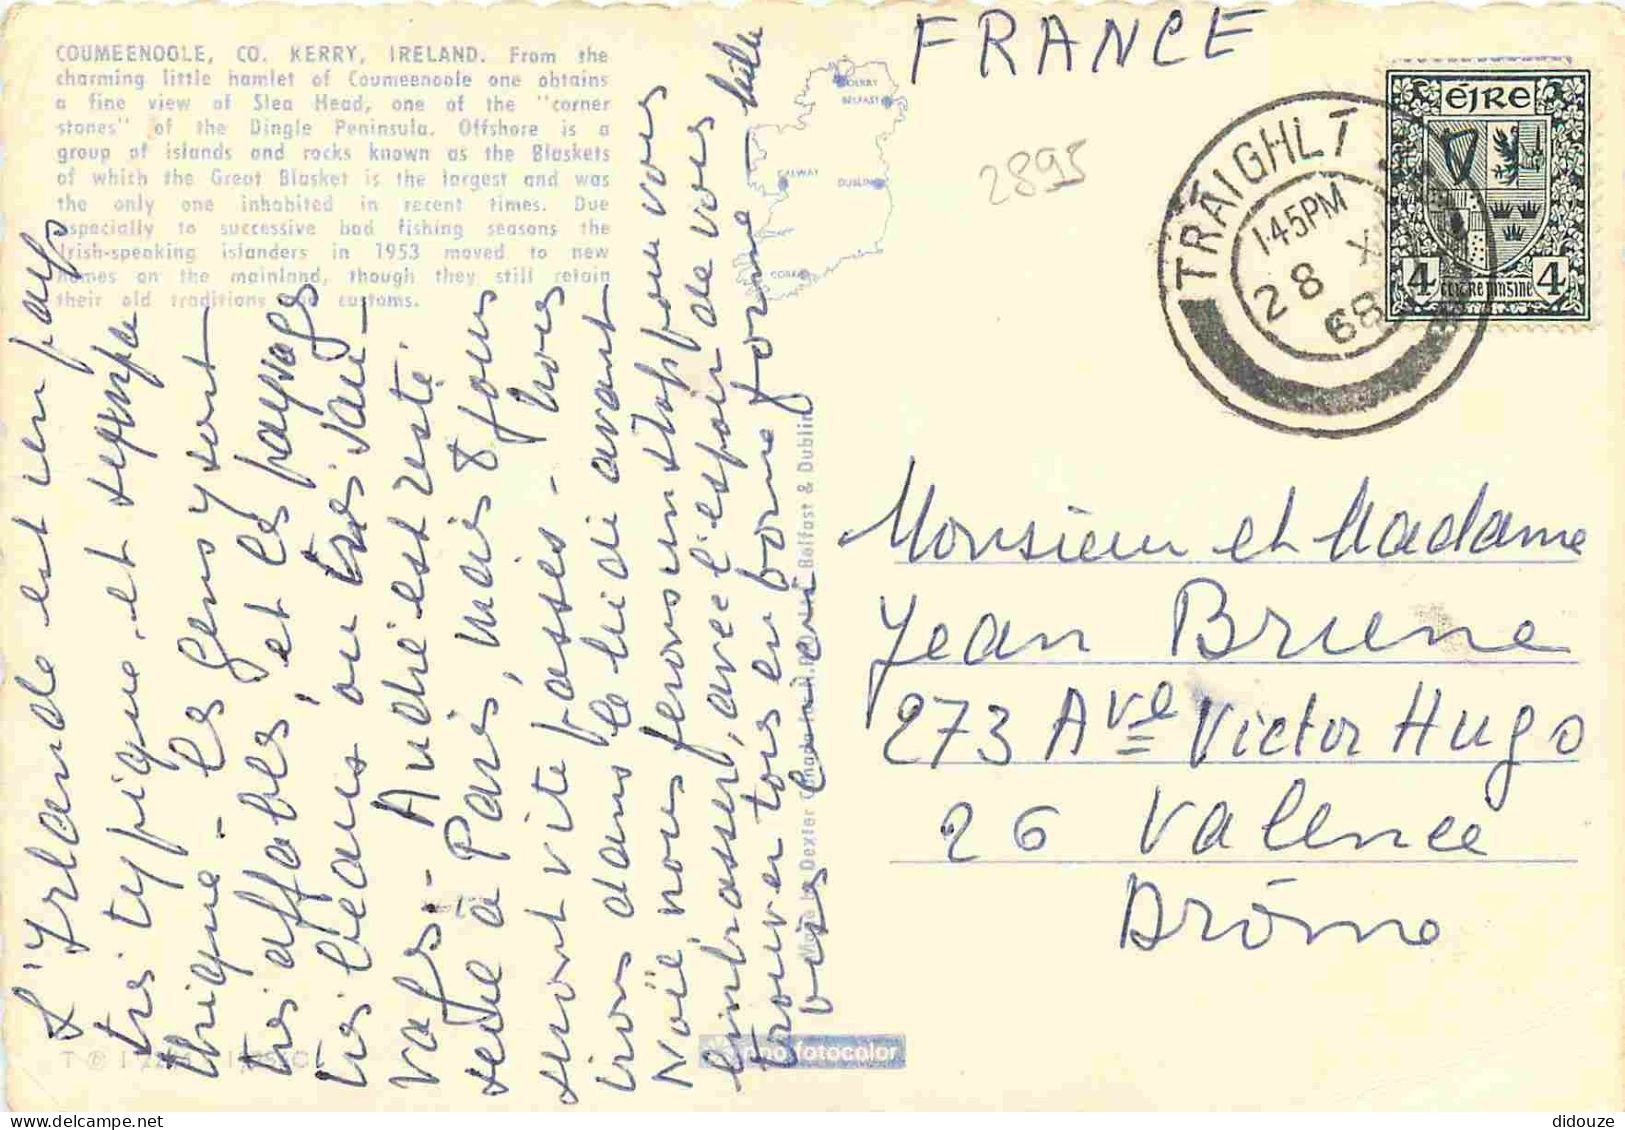 COUMEENOOLE, CO. KERRY, IRELAND. From the
charming little hamlet of Coumeenoole one obtains
a fine view of Slea Head, one of the "corner
stones" of the Dingle Peninsula. Offshore is a
group of islands and rocks known as the Blaskets
of which the Great Blasket is the largest and was
the only one inhabited in recent times. Due
especially to successive bad fishing seasons the
Irish-speaking islanders in 1953 moved to new
homes on the mainland, though they still retain
their old traditions and customs.
DERRY
BELFAST
GALWAY
DUBLIN
CORK
FRANCE
2895
TRAIGHLI
1.45PM
28 XI
68
ÉIRE
4 4
L'Irlande est un pays
très typique, et sympa
thique - les gens y sont
très affables, et les paysages
très beaux ou très sau-
vages - André est resté
seul à Paris, mais 8 jours
sont vite passés - nous
irons dans le Midi avant
Noël, nous ferons un stop pour vous
embrasser, avec l'espoir de vous
trouver tous en bonne forme -
Made by Dexter Belfast & Dublin
fotocolor
Monsieur et Madame
Jean Brune
273 Ave Victor Hugo
26 Valence
Drôme
didouze